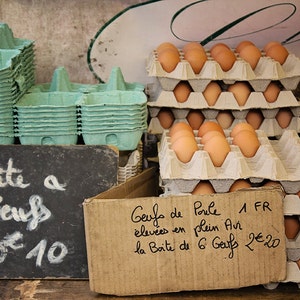 te a
Oeufs
10
Oeufs de Poule 1 FR
élevées en plein Air
la Boîte de 6 Oeufs 2€20